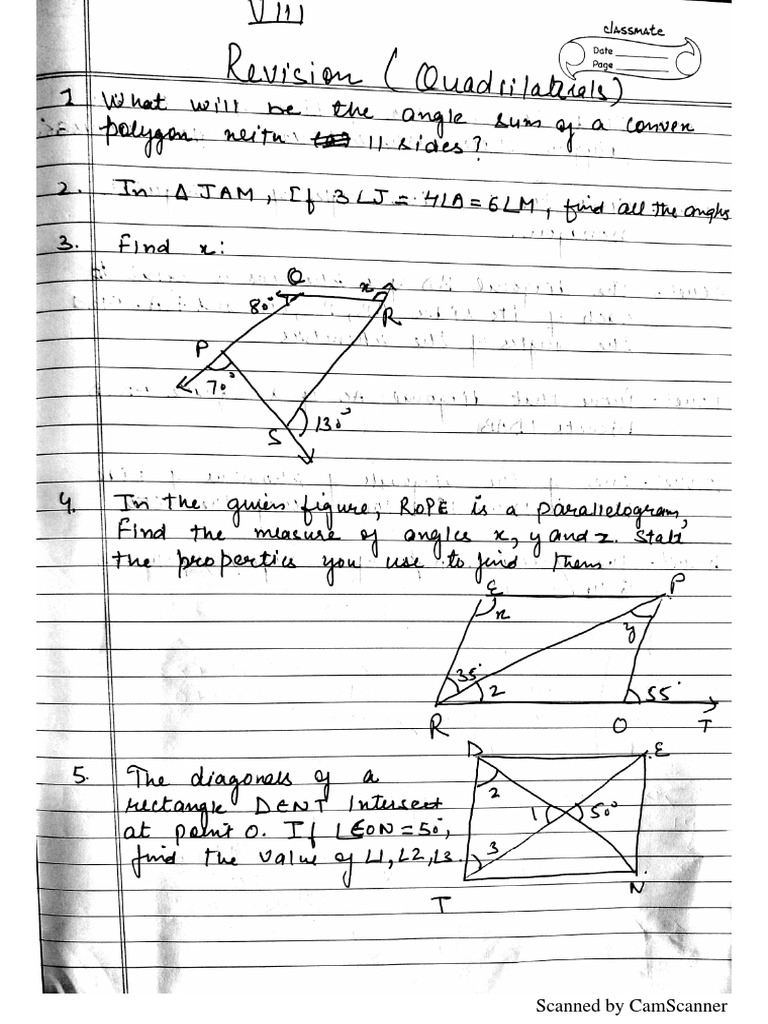 VIII
classmate
Date
Page
Revision (Quadrilaterals)
1 What will be the angle sum of a convex
polygon with 11 sides?
2. In Δ JAM, If 3∠J = 4∠A = 6∠M, find all the angles
3. Find x:
Q
x
80°
R
P
70°
130°
S
4. In the given figure, ROPE is a parallelogram,
Find the measure of angles x, y and z. State
the properties you use to find them.
E
P
x
y
35°
z
55°
R
O
T
D
E
5. The diagonals of a
rectangle DENT Intersect
at point O. If ∠EON = 50°,
find the value of ∠1, ∠2, ∠3.
2
1
50°
3
N
T
Scanned by CamScanner